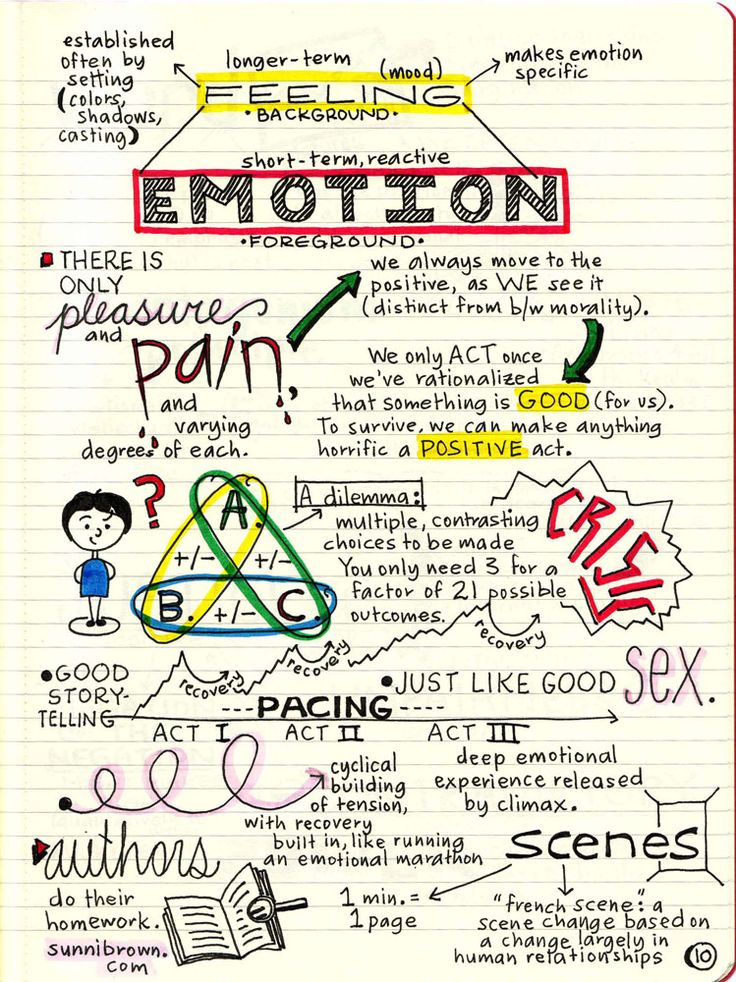 established
often by
setting
(colors,
shadows,
casting)
longer-term
(mood)
makes emotion
specific
FEELING
•BACKGROUND•
short-term, reactive
EMOTION
•FOREGROUND•
THERE IS
ONLY
pleasure
and
pain,
and
varying
degrees of each.
we always move to the
positive, as WE see it
(distinct from b/w morality).
We only ACT once
we've rationalized
that something is GOOD (for us).
To survive, we can make anything
horrific a POSITIVE act.
?
A
+/- +/-
B. +/- C.
A dilemma:
multiple, contrasting
choices to be made
You only need 3 for a
factor of 21 possible
outcomes.
CRISIS
recovery
recovery
recovery
•GOOD
STORY-
TELLING
--- PACING ----
•JUST LIKE GOOD sex.
ACT I ACT II ACT III
cyclical
building
of tension,
with recovery
built in, like running
an emotional marathon
deep emotional
experience released
by climax.
authors
do their
homework.
sunnibrown.
com
scenes
1 min. =
1 page
"french scene": a
scene change based on
a change largely in
human relationships
10